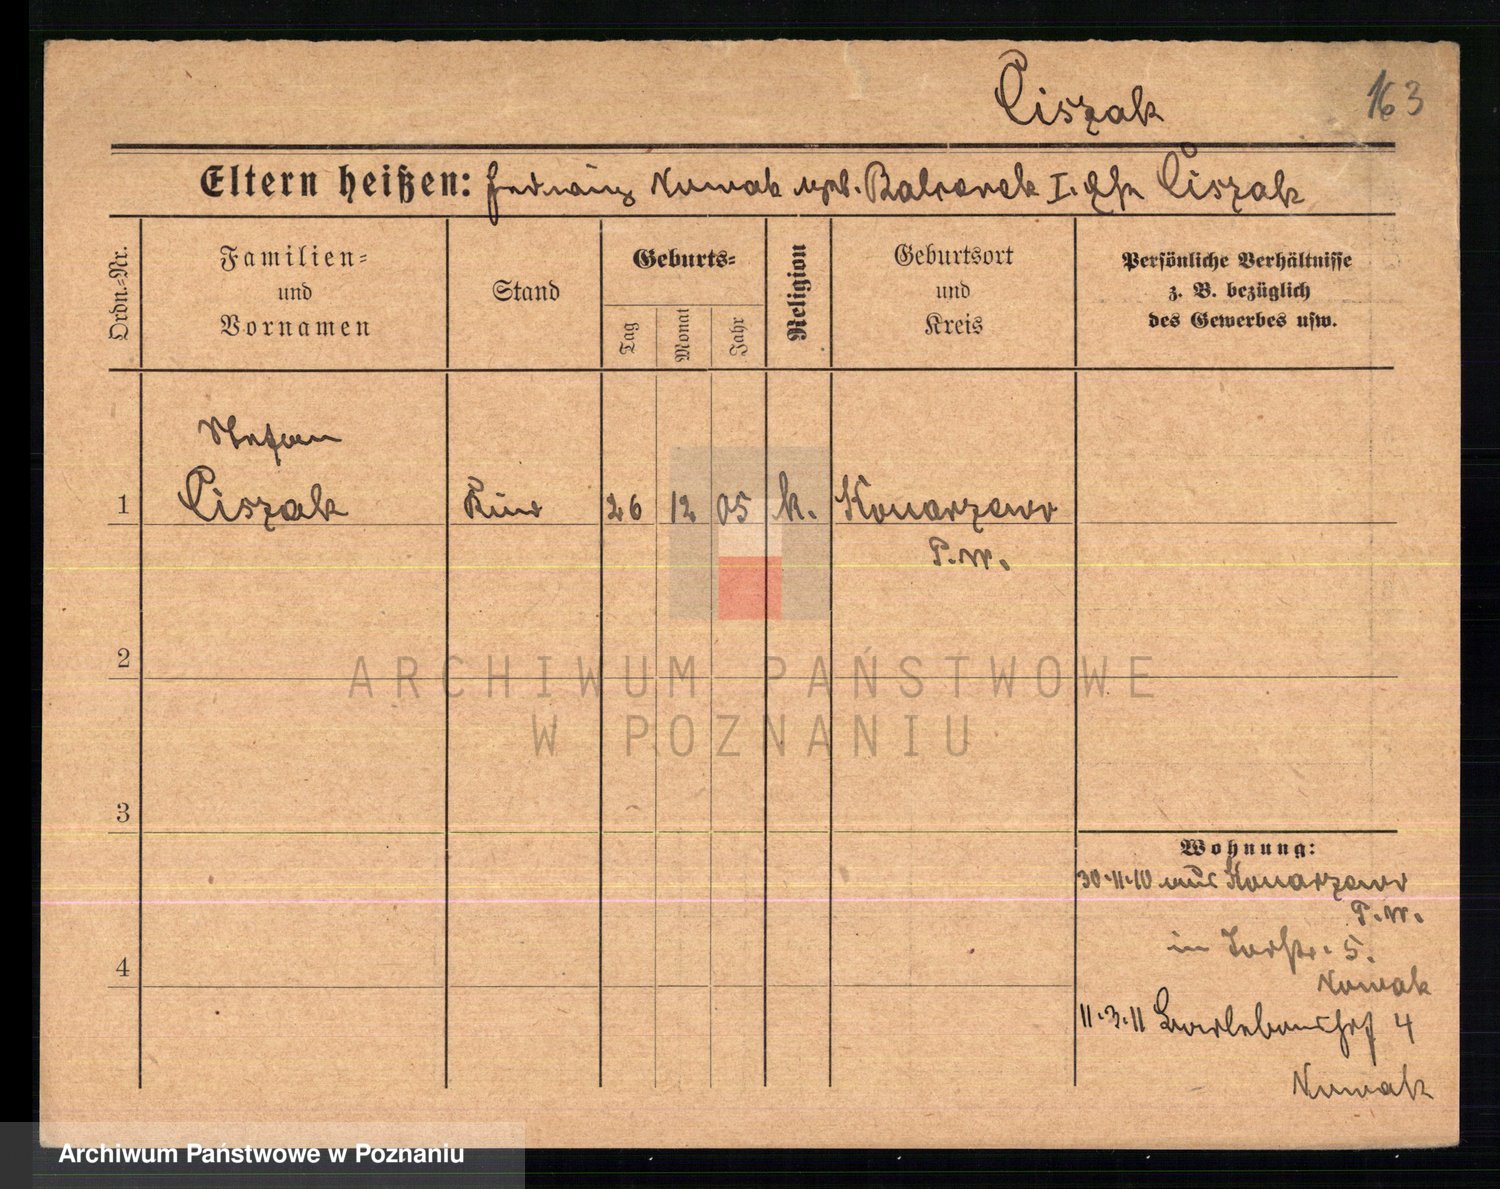 Ciszak
163
Eltern heißen: Nowak geb. I. Ciszak
Ordn.-Nr.
Familien-
und
Vornamen
Stand
Geburts-
Tag
Monat
Jahr
Religion
Geburtsort
und
Kreis
Persönliche Verhältnisse
z. B. bezüglich
des Gewerbes usw.
Stefan
1 Ciszak Kind 26 12 05 k. Konarzewo
P.W.
2
3
4
Wohnung:
30.11.10 aus Konarzewo
P.W.
in 5.
Nowak
11.3.11 4
Nowak
ARCHIWUM PAŃSTWOWE
W POZNANIU
Archiwum Państwowe w Poznaniu